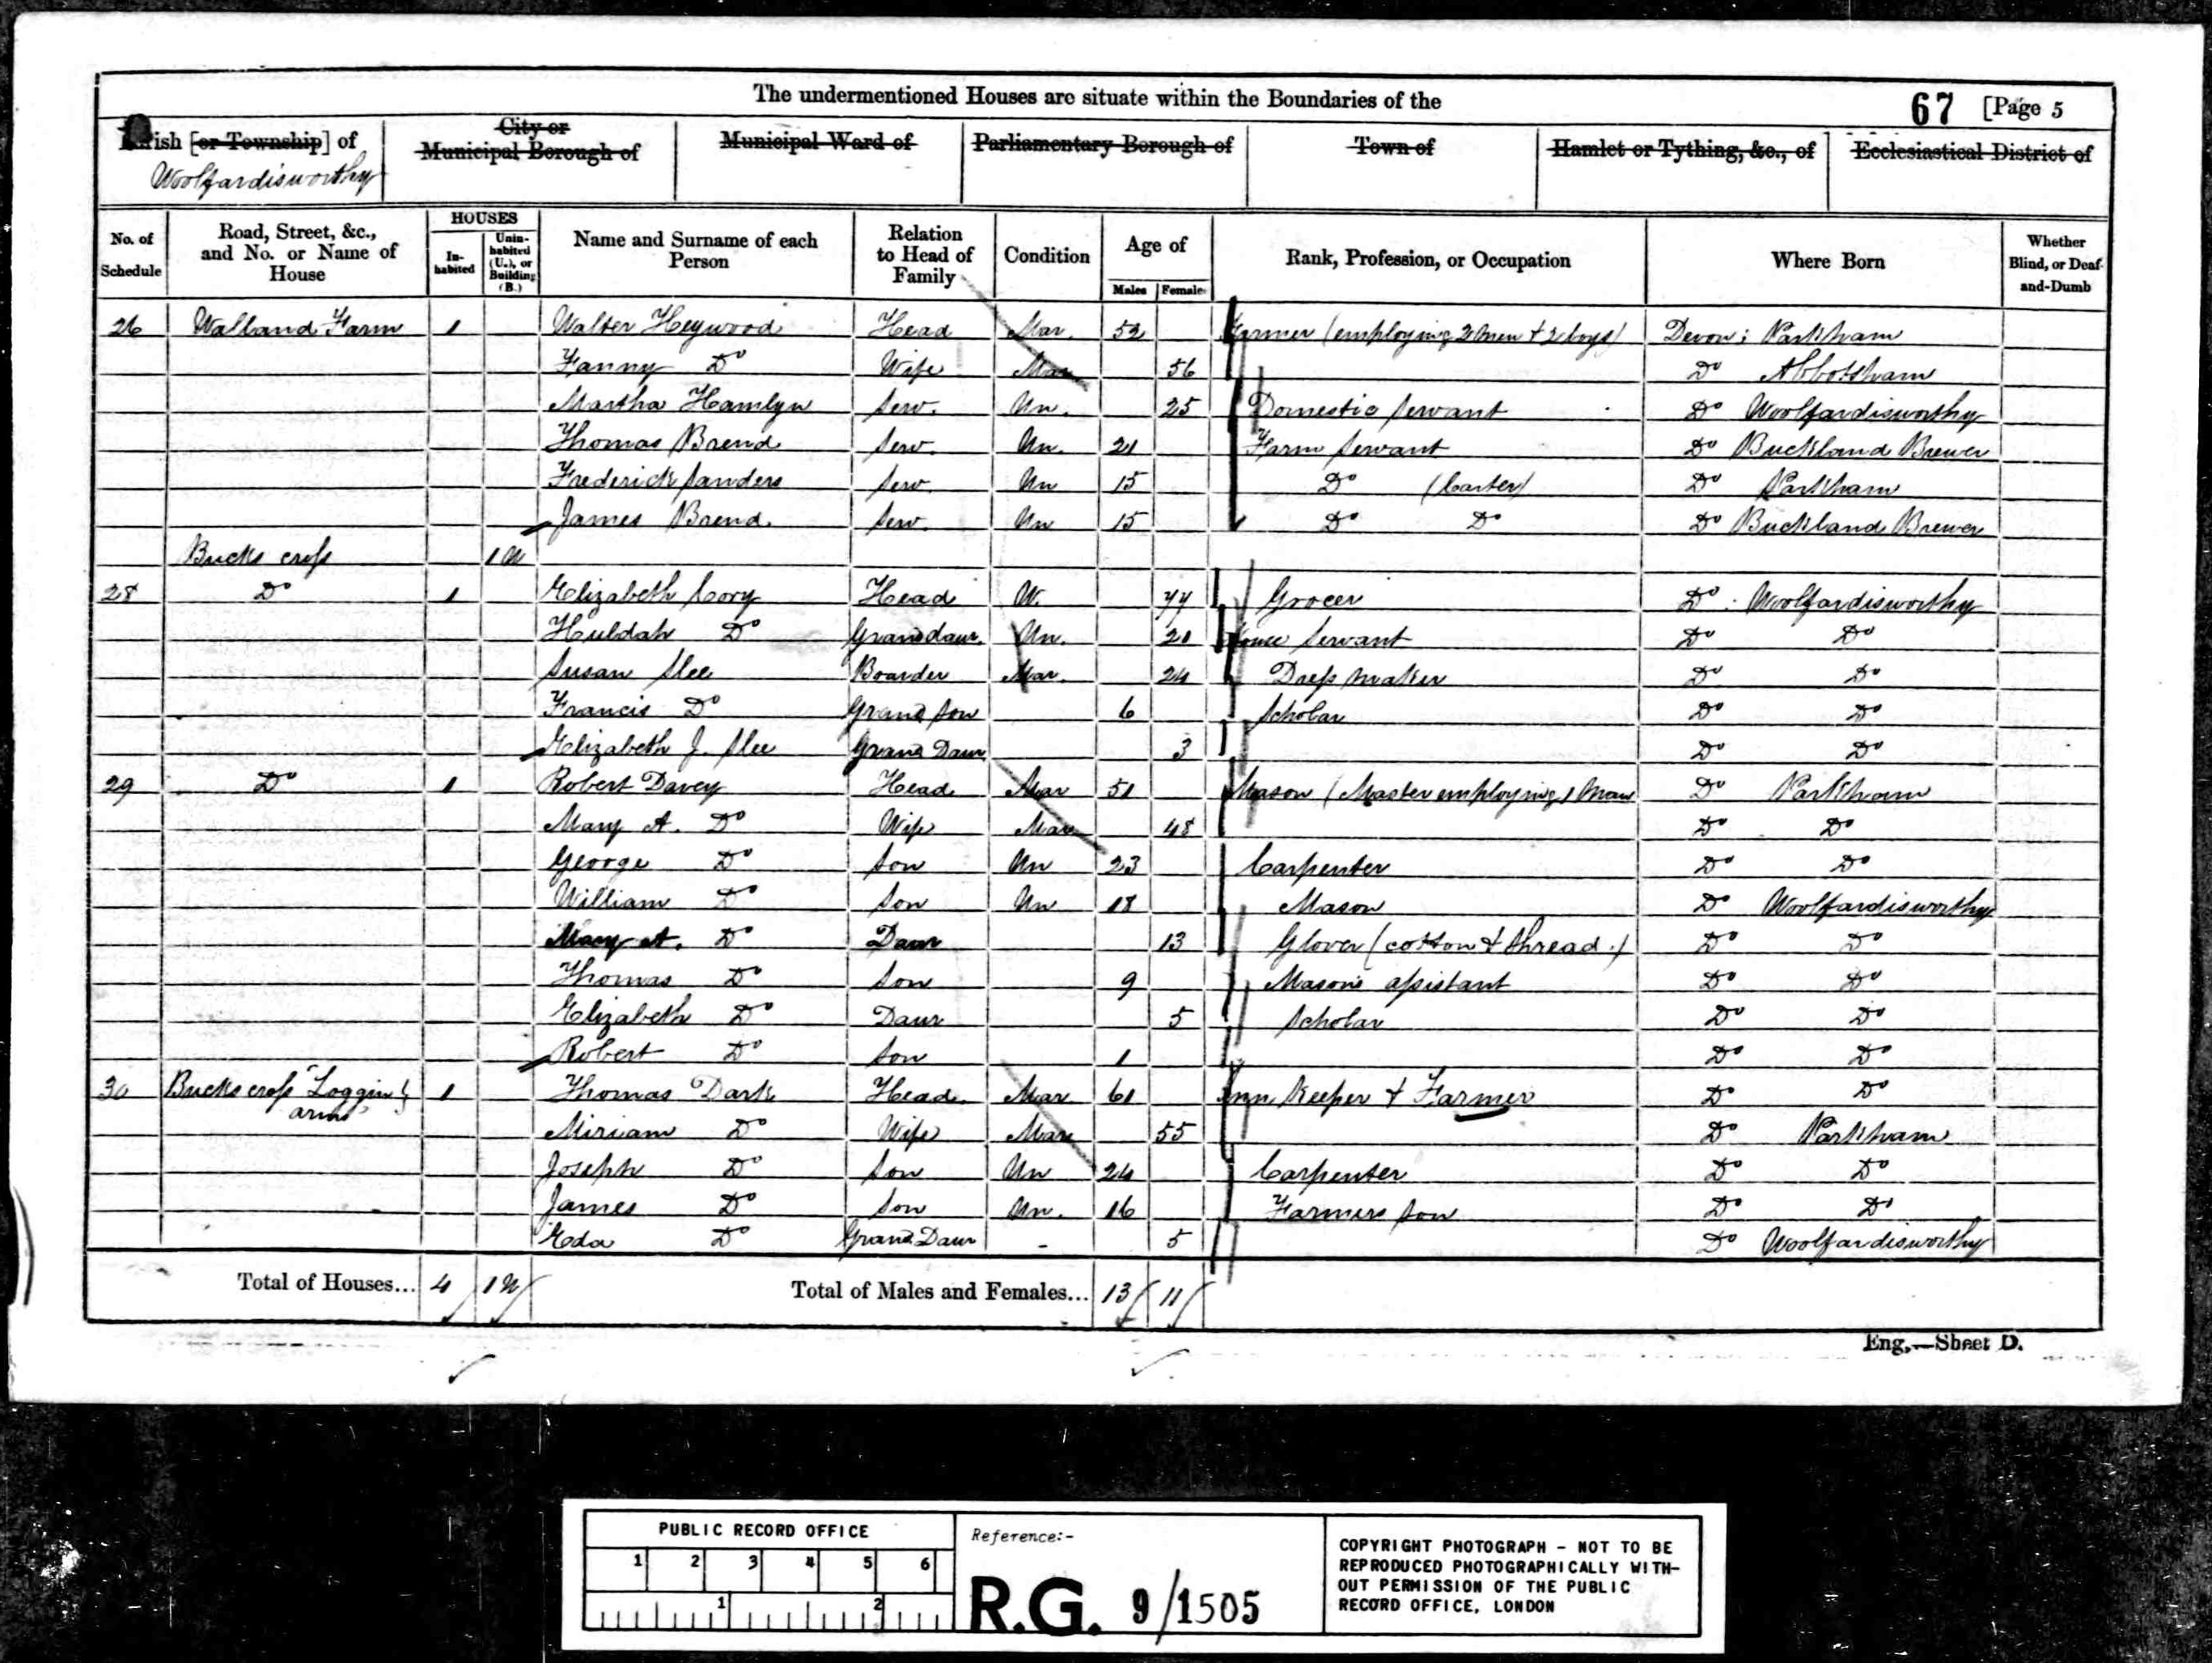 The undermentioned Houses are situate within the Boundaries of the
67 [Page 5
rish [or Township] of
City or Municipal Borough of
Municipal Ward of
Parliamentary Borough of
Town of
Hamlet or Tything, &c., of
Ecclesiastical District of
Woolfardisworthy
No. of Schedule
Road, Street, &c., and No. or Name of House
HOUSES
In-habited
Unin-habited (U.), or Building (B.)
Name and Surname of each Person
Relation to Head of Family
Condition
Age of
Males
Females
Rank, Profession, or Occupation
Where Born
Whether Blind, or Deaf-and-Dumb
26 Walland Farm 1 Walter Heywood Head Mar. 52 Farmer (employing 2 men + 2 boys) Devon; Parkham
Fanny Do Wife Mar 56 Do Abbotsham
Martha Hamlyn Serv. Un. 25 Domestic Servant Do Woolfardisworthy
Thomas Brend Serv. Un. 21 Farm Servant Do Buckland Brewer
Frederick Sanders Serv. Un 15 Do (Carter) Do Parkham
James Brend. Serv. Un 15 Do Do Do Buckland Brewer
Bucks cross 1 U
28 Do 1 Elizabeth Cory Head W. 77 Grocer Do Woolfardisworthy
Huldah Do Grandaur. Un. 20 House Servant Do Do
Susan Slee Boarder Mar. 24 Dress maker Do Do
Francis Do Grand Son 6 Scholar Do Do
Elizabeth J. Slee Grand Daur 3 Do Do
29 Do 1 Robert Davey Head Mar 51 Mason (Master employing 1 Man Do Parkham
Mary A. Do Wife Mar 48 Do Do
George Do Son Un 23 Carpenter Do Do
William Do Son Un 18 Mason Do Woolfardisworthy
Mary A. Do Daur 13 Glover (cotton & thread.) Do Do
Thomas Do Son 9 Masons assistant Do Do
Elizabeth Do Daur 5 Scholar Do Do
Robert Do Son 1 Do Do
30 Bucks cross "Loggin 1 Thomas Dark Head. Mar 61 Inn Keeper + Farmer Do Do
arms"
Miriam Do Wife Mar 55 Do Parkham
Joseph Do Son Un 24 Carpenter Do Do
James Do Son Un. 16 Farmers Son Do Do
Eda Do Grand Daur - 5 Do Woolfardisworthy
Total of Houses... 4 1 U Total of Males and Females... 13 11
Eng.—Sheet D.
PUBLIC RECORD OFFICE
1 2 3 4 5 6
1 2
Reference:-
R.G. 9/1505
COPYRIGHT PHOTOGRAPH - NOT TO BE
REPRODUCED PHOTOGRAPHICALLY WITH-
OUT PERMISSION OF THE PUBLIC
RECORD OFFICE, LONDON